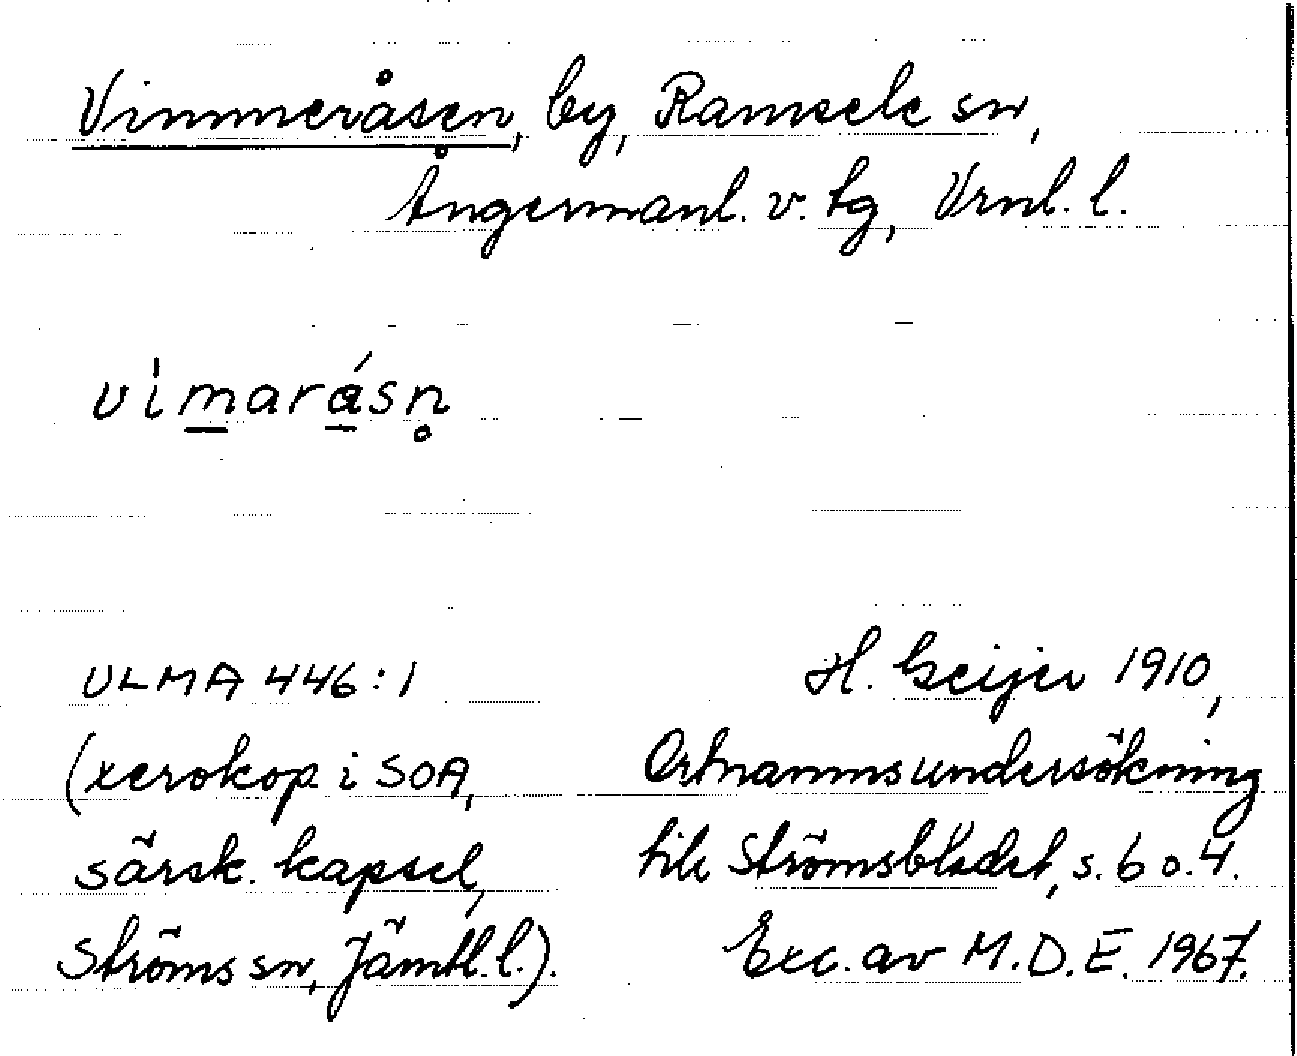 Vimmeråsen, by, Ramsele sn,
Ångermanl. v. tg, Vrnl. l.
vimarásn̥
ULMA 446:1
(xerokop. i SOA,
särsk. kapsel,
Ströms sn, Jämtl. l.).
H. Geijer 1910,
Ortnamnsundersökning
till Strömsbladet, s. 6 o. 4.
Exc. av M.D.E. 1967.